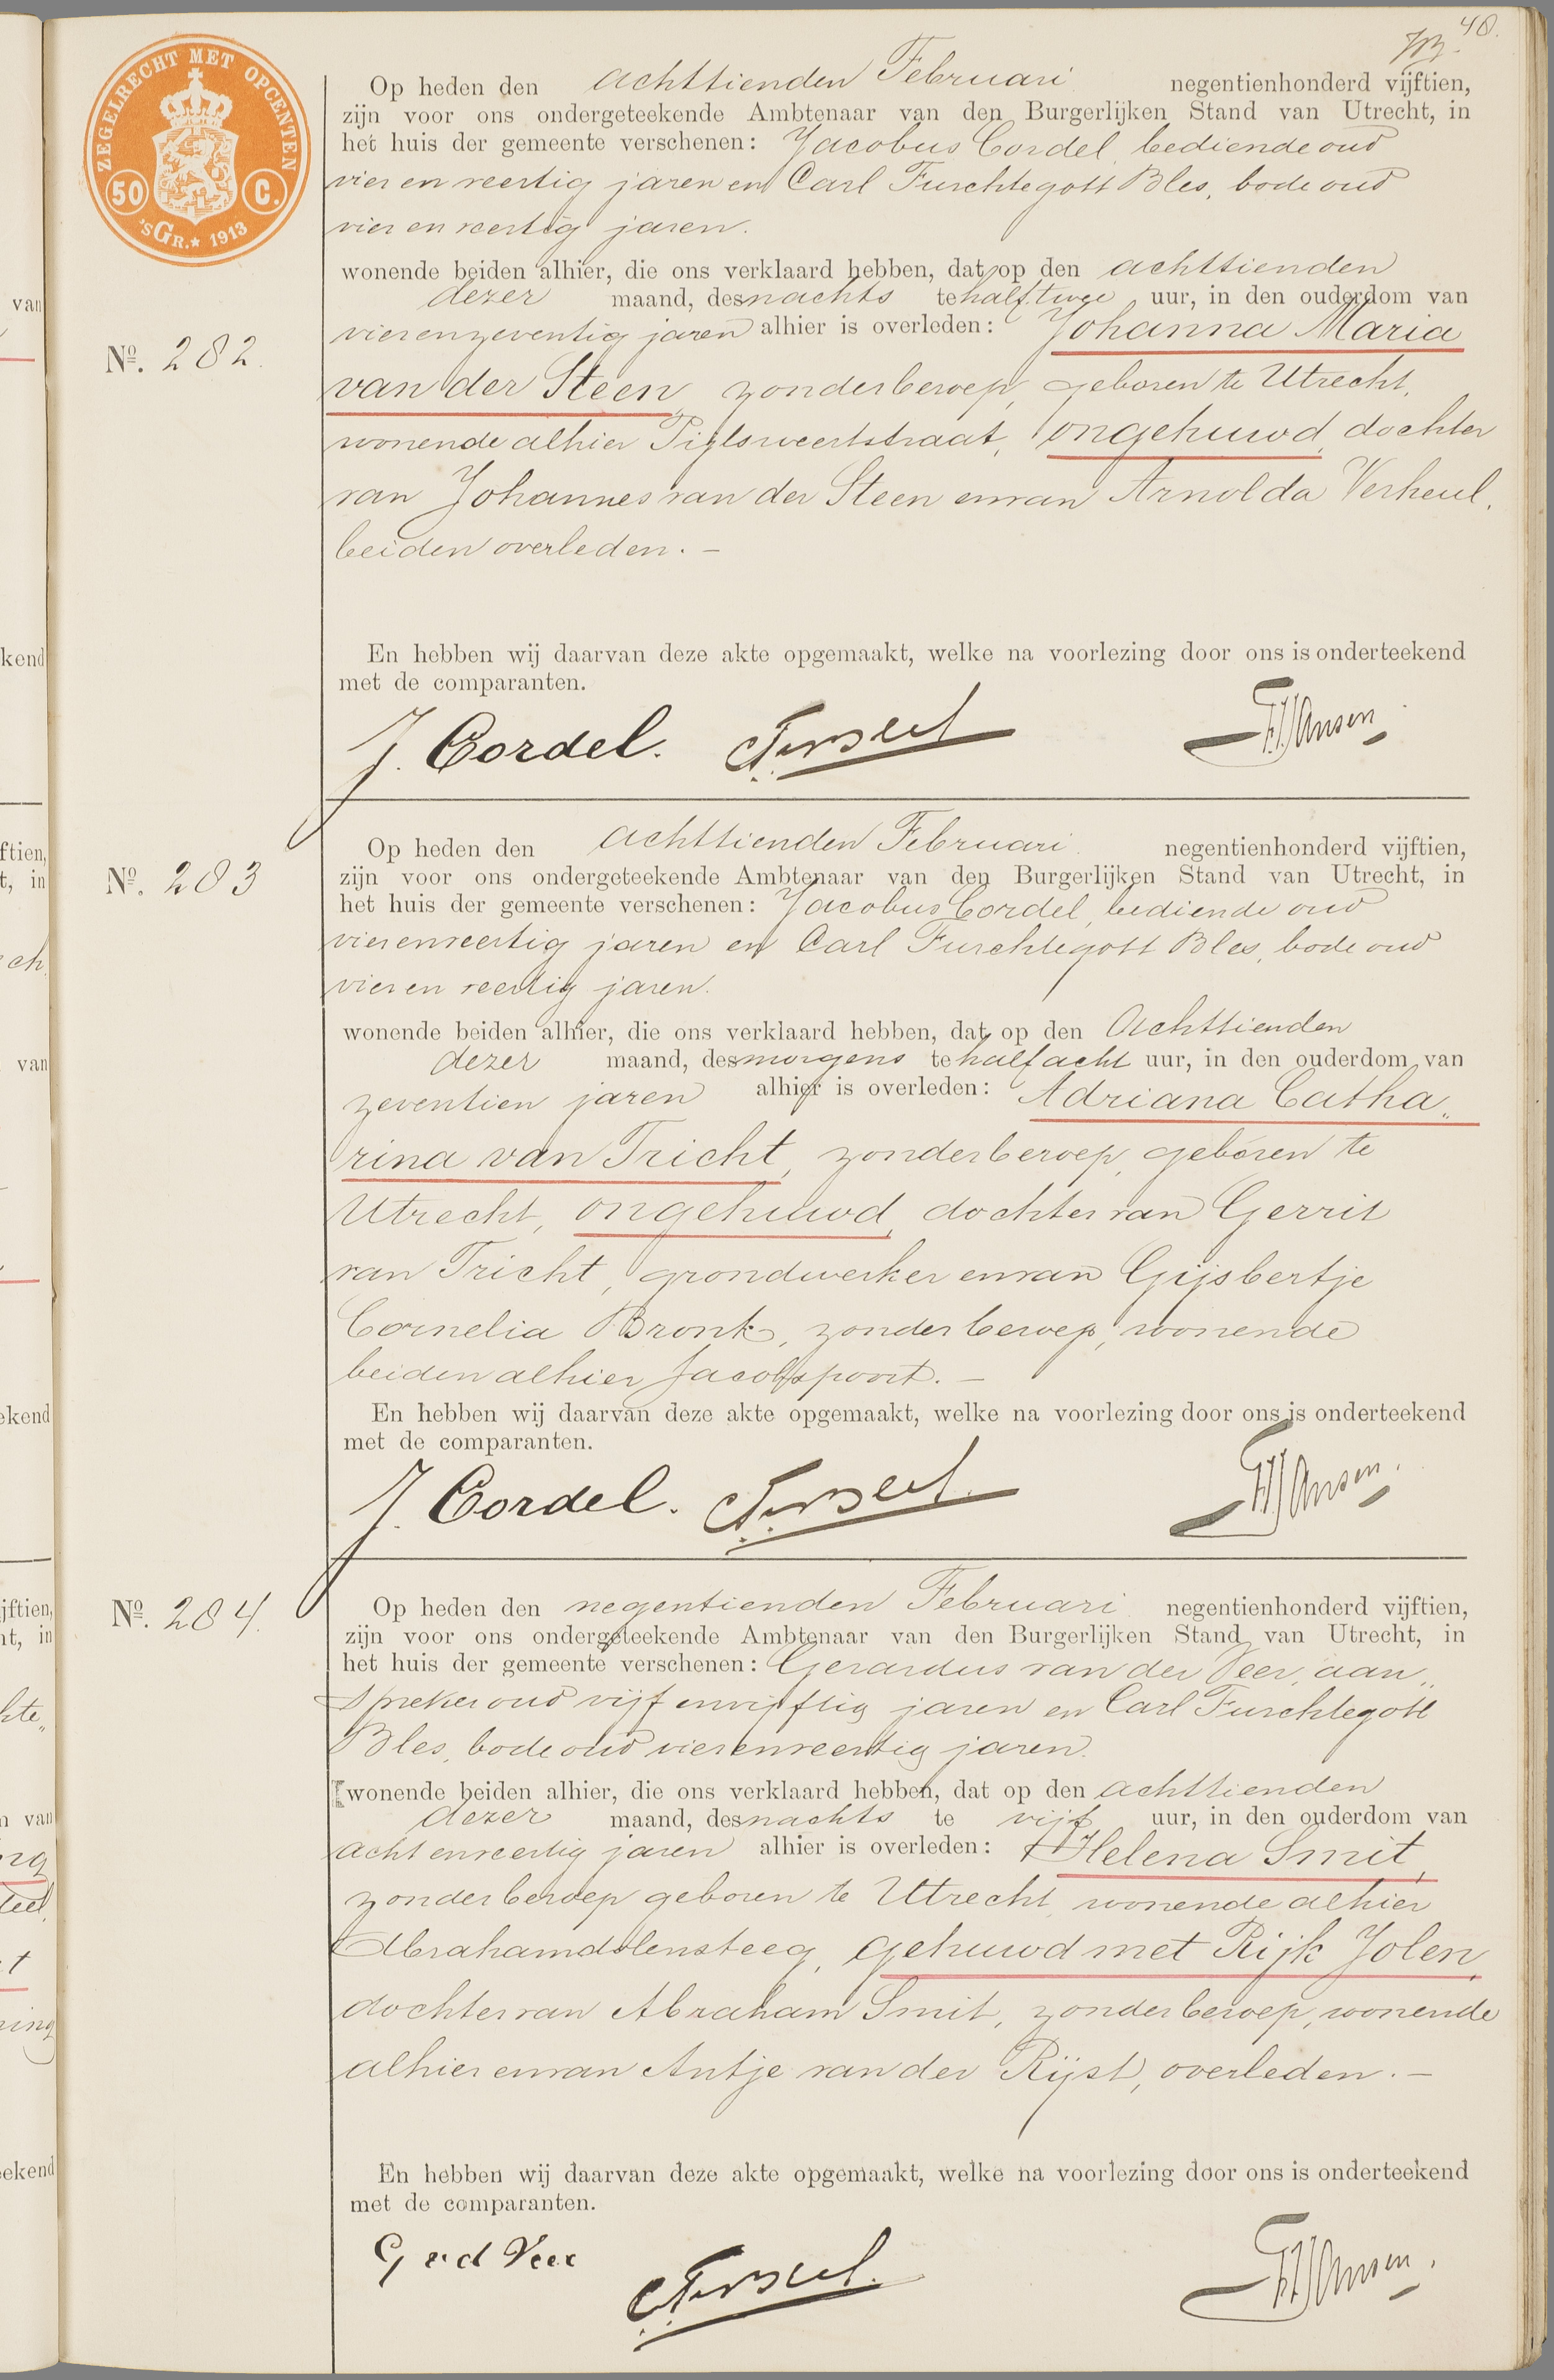 48.
ZEGELRECHT MET OPCENTEN
50 C.
'sGR.★ 1913
Op heden den achttienden Februari negentienhonderd vijftien,
zijn voor ons ondergeteekende Ambtenaar van den Burgerlijken Stand van Utrecht, in
het huis der gemeente verschenen: Jacobus Cordel, bediende oud
vier en veertig jaren en Carl Furchtegott Bles, bode oud
vier en veertig jaren.
wonende beiden alhier, die ons verklaard hebben, dat op den achttienden
dezer maand, des nachts te half twee uur, in den ouderdom van
vierenzeventig jaren alhier is overleden: Johanna Maria
Nº. 282.
van der Steen, zonder beroep, geboren te Utrecht,
wonende alhier Pijlsweertstraat, ongehuwd, dochter
van Johannes van der Steen en van Arnolda Verheul,
beiden overleden. –
En hebben wij daarvan deze akte opgemaakt, welke na voorlezing door ons is onderteekend
met de comparanten.
J. Cordel. FJJansen
Nº. 283
Op heden den achttienden Februari negentienhonderd vijftien,
zijn voor ons ondergeteekende Ambtenaar van den Burgerlijken Stand van Utrecht, in
het huis der gemeente verschenen: Jacobus Cordel, bediende oud
vierenveertig jaren en Carl Furchtegott Bles, bode oud
vier en veertig jaren.
wonende beiden alhier, die ons verklaard hebben, dat op den Achttienden
dezer maand, des morgens te half acht uur, in den ouderdom van
zeventien jaren alhier is overleden: Adriana Catha„
rina van Tricht, zonder beroep, geboren te
Utrecht, ongehuwd, dochter van Gerrit
van Tricht, grondwerker en van Gijsbertje
Cornelia Bronk, zonder beroep, wonende
beiden alhier Jacobspoort. –
En hebben wij daarvan deze akte opgemaakt, welke na voorlezing door ons is onderteekend
met de comparanten.
J. Cordel. FJJansen.
Nº. 284.
Op heden den negentienden Februari negentienhonderd vijftien,
zijn voor ons ondergeteekende Ambtenaar van den Burgerlijken Stand van Utrecht, in
het huis der gemeente verschenen: Gerardus van der Veer, aan„
spreker oud vijf en vijftig jaren en Carl Furchtegott
Bles, bode oud vierenveertig jaren.
wonende beiden alhier, die ons verklaard hebben, dat op den achttienden
dezer maand, des nachts te vijf uur, in den ouderdom van
acht en veertig jaren alhier is overleden: Helena Smit,
zonder beroep geboren te Utrecht, wonende alhier
Abrahamdolensteeg, gehuwd met Rijk Jolen,
dochter van Abraham Smit, zonder beroep, wonende
alhier en van Antje van der Rijst, overleden. –
En hebben wij daarvan deze akte opgemaakt, welke na voorlezing door ons is onderteekend
met de comparanten.
G vd Veer FJJansen.